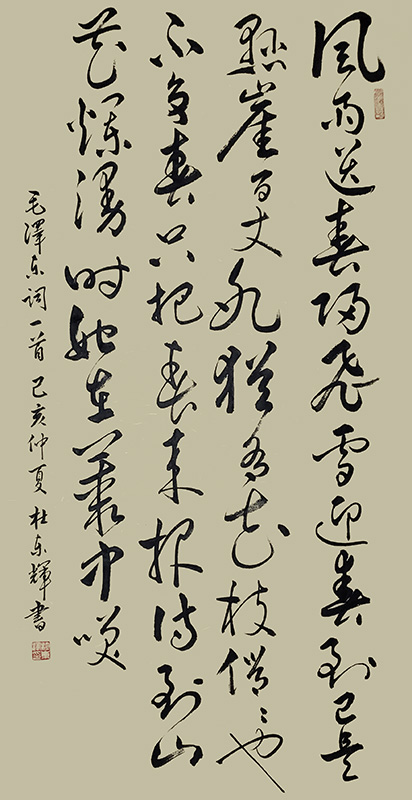 風雨送春歸飛雪迎春到已是
懸崖百丈氷猶有花枝俏〻也
不爭春只把春来報待到山
花爛漫時她在叢中咲
毛澤东詞一首 己亥仲夏 杜东輝書